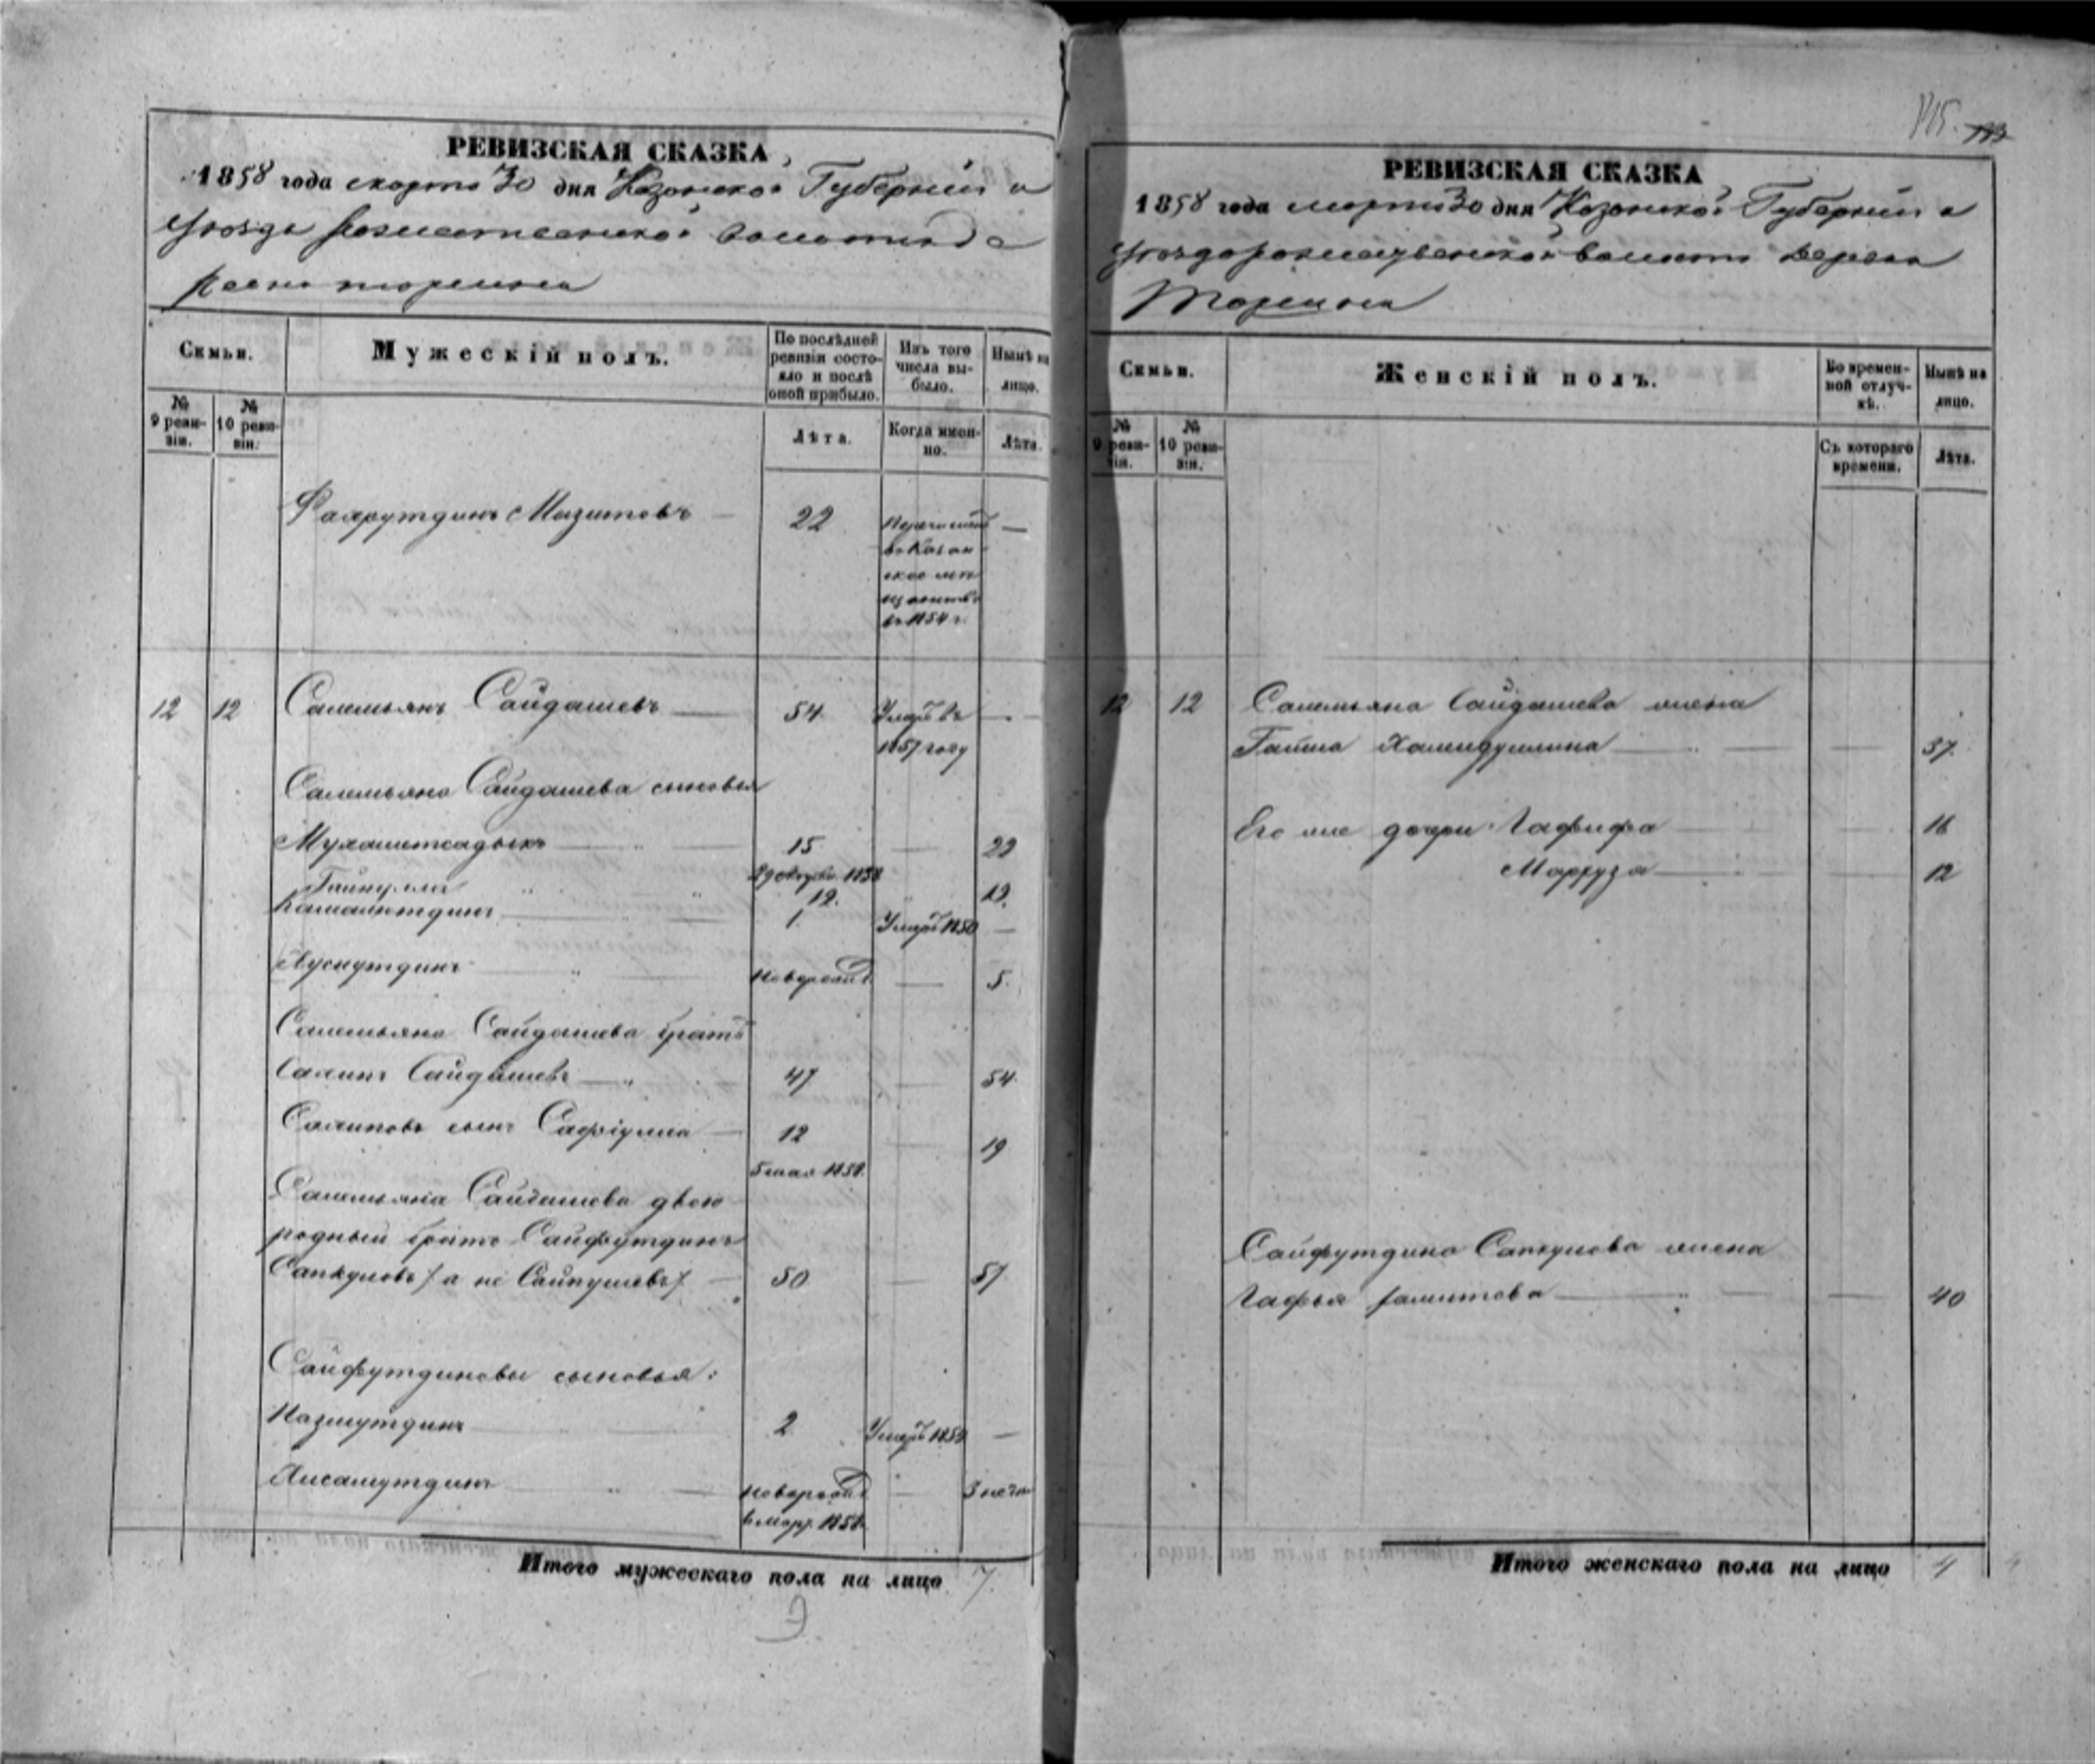 115.
РЕВИЗСКАЯ СКАЗКА
1858 года марта 30 дня Казанской Губернии и
уезда Рожественской волости де
ревни
Семьи.
Мужескій полъ.
По послѣдней ревизіи состояло и послѣ оной прибыло.
Изъ того числа выбыло.
Нынѣ на лицо.
№ 9 ревизіи.
№ 10 ревизіи.
Лѣта.
Когда именно.
Лѣта.
Фахрутдинъ Мазитовъ — 22 —
в Казан
ское ме
щанство
въ 1854 г.
12 12 Салемьянъ Сайдашевъ — 54 Умеръ въ —
1857 году
Салемьяна Сайдашева сыновья
Мухаметсадыкъ 15 — 22
Гайнулла 12. 19.
Камалитдинъ 1 Умеръ 1850 —
Хуснутдинъ новорожд. — 5.
Салемьяна Сайдашева братъ
Салихъ Сайдашевъ — 47 — 54
Салиховъ сынъ Сафіулла — 12 — 19
5 мая 1858.
Салемьяна Сайдашева двою
родный братъ Сайфутдинъ
Сапкуловъ /а не Сайпушевъ/ — 50 — 57
Сайфутдиновы сыновья:
Назмутдинъ 2 Умеръ —
Хисамутдинъ новорожд. —
Итого мужескаго пола на лицо 7
РЕВИЗСКАЯ СКАЗКА
1858 года марта 30 дня Казанской Губернии и
волости деревни
Семьи.
Женскій полъ.
Во временной отлучкѣ.
Нынѣ на лицо.
№ 9 ревизіи.
№ 10 ревизіи.
Съ котораго времени.
Лѣта.
12 12 Салемьяна Сайдашева жена
Гайша Хамидуллина — — 37.
Его же дочери Гафифа — 16
Марфуза — — 12
Сайфутдина Сапкулова жена
Гафья — — 40
Итого женскаго пола на лицо 4